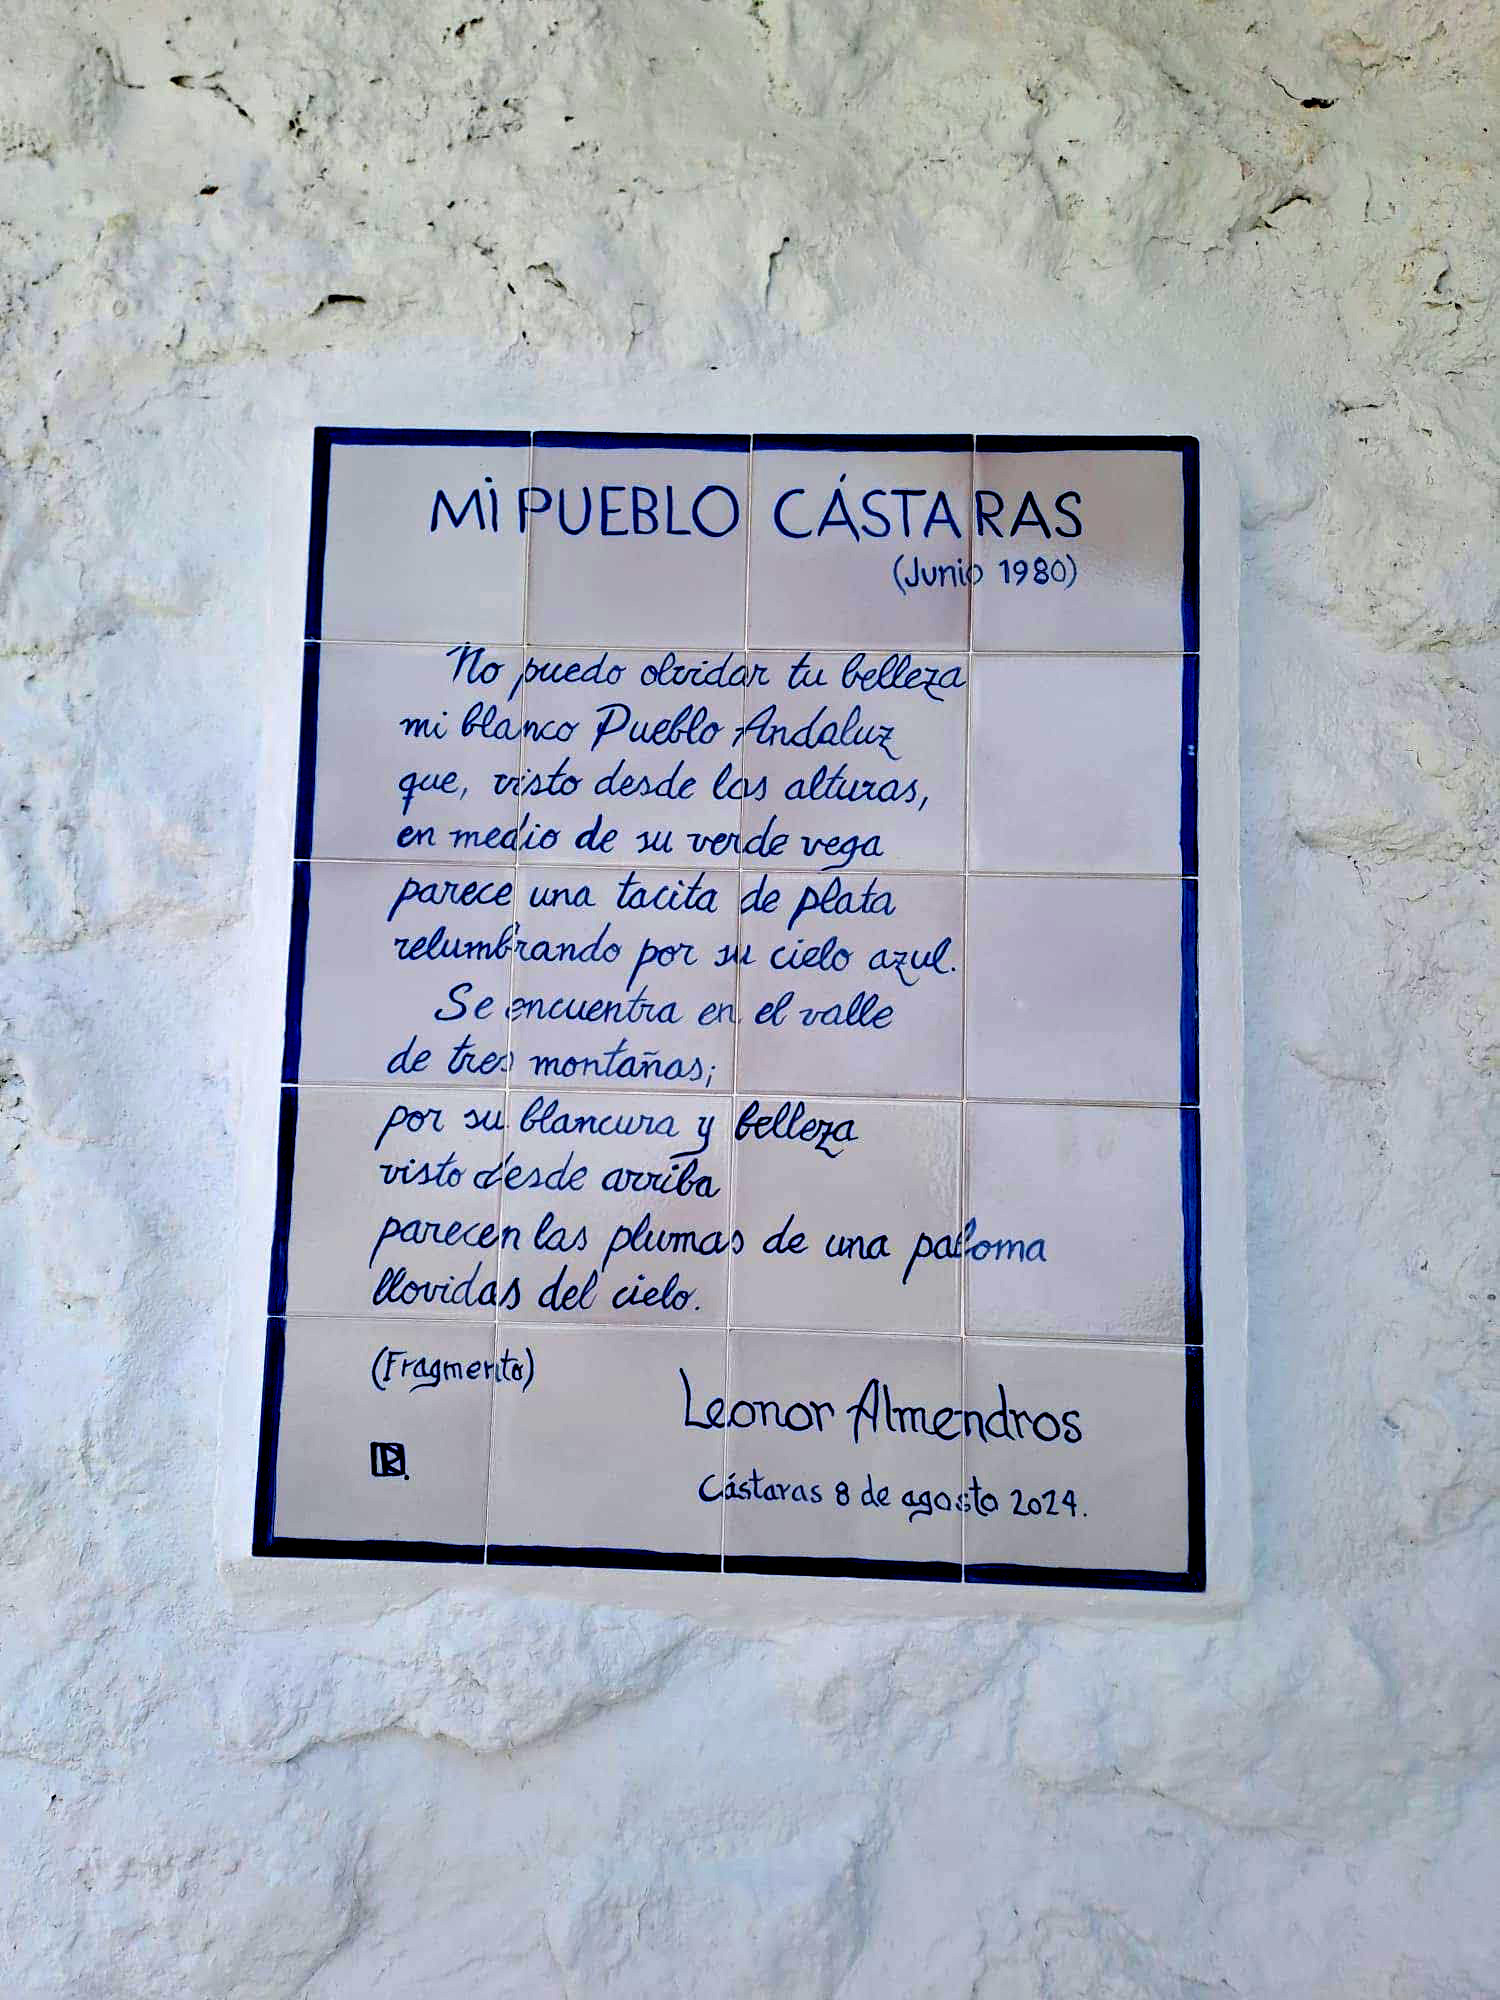 Mi PUEBLO CÁSTARAS
(Junio 1980)
No puedo olvidar tu belleza
mi blanco Pueblo Andaluz
que, visto desde las alturas,
en medio de su verde vega
parece una tacita de plata
relumbrando por su cielo azul.
Se encuentra en el valle
de tres montañas;
por su blancura y belleza
visto desde arriba
parecen las plumas de una paloma
llovidas del cielo.
(Fragmento)
Leonor Almendros
Cástaras 8 de agosto 2024.